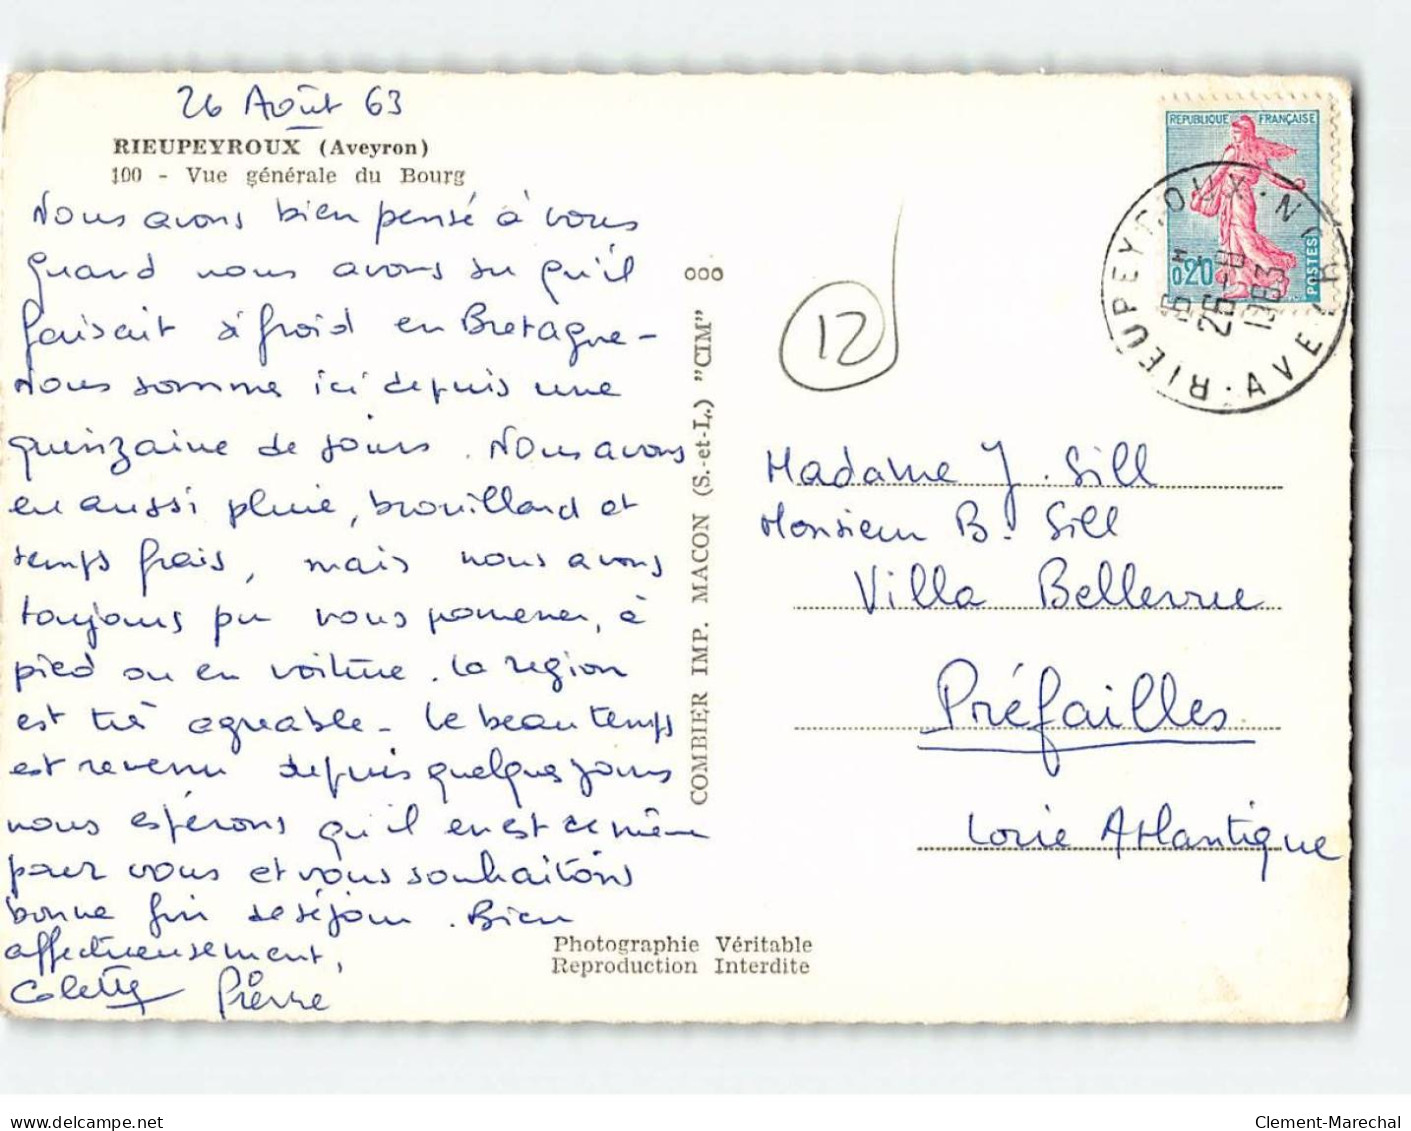 26 Août 63
RIEUPEYROUX (Aveyron)
100 - Vue générale du Bourg
Nous avons bien pensé à vous
quand nous avons su qu'il
faisait si froid en Bretagne -
Nous sommes ici depuis une
quinzaine de jours. Nous avons
eu aussi pluie, brouillard et
temps frais, mais nous avons
toujours pu nous promener, à
pied ou en voiture. La région
est très agréable - Le beau temps
est revenu depuis quelques jours
nous espérons qu'il en est de même
pour vous et vous souhaitons
bonne fin de séjour. Bien
affectueusement,
Colette Pierre
COMBIER IMP. MACON (S.-et-L.) "CIM"
12
REPUBLIQUE FRANÇAISE
0,20
POSTES
RIEUPEYROUX
26-8
1963
AVEYRON
Madame J. Gill
Monsieur B. Gill
Villa Bellevue
Préfailles
Loire Atlantique
Photographie Véritable
Reproduction Interdite
www.delcampe.net
Clement-Marechal